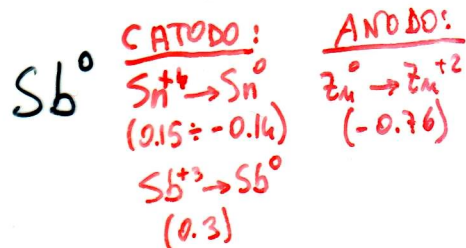 Sb⁰
CATODO:
Sn⁺⁴ → Sn⁰
(0.15 ÷ -0.14)
Sb⁺³ → Sb⁰
(0.3)
ANODO:
Zn⁰ → Zn⁺²
(-0.76)